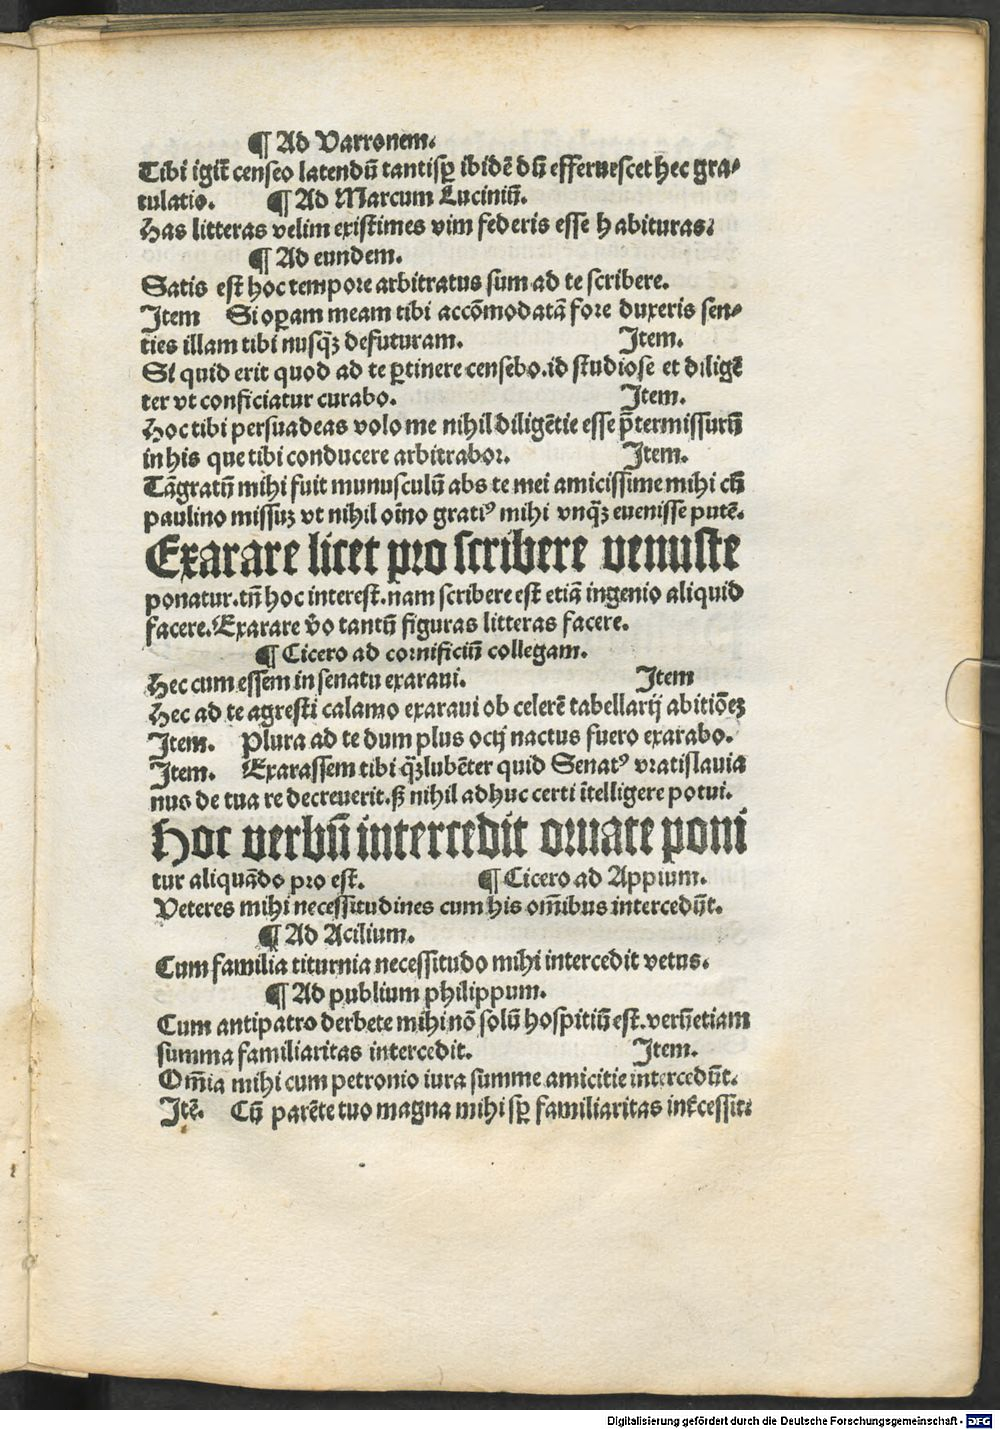 ¶ Ad Varronem.
Tibi igit̄ censeo latendū tantisꝑ ibidē dū efferuescet hec gra⸗
tulatio. ¶ Ad Marcum Luciniū.
Has litteras velim existimes vim federis esse habituras.
¶ Ad eundem.
Satis est hoc tempore arbitratus sum ad te scribere.
Item Si oꝑam meam tibi accōmodatā fore duxeris sen⸗
ties illam tibi nusq̄ꝫ defuturam. Item.
Si quid erit quod ad te ꝑtinere censebo.id studiose et diligē
ter vt conficiatur curabo. Item.
Hoc tibi persuadeas volo me nihil diligētie esse p̄termissurū
in his que tibi conducere arbitrabor. Item.
Tāgratū mihi fuit munusculū abs te mei amicissime mihi cū
paulino missuꝫ vt nihil oīno gratiꝰ mihi vnq̄ꝫ euenisse putē.
Exarare licet pro scribere venuste
ponatur.tn̄ hoc interest.nam scribere est etiā ingenio aliquid
facere.Exarare v̄o tantū figuras litteras facere.
¶ Cicero ad cornificiū collegam.
Hec cum essem in senatu exaraui. Item
Hec ad te agresti calamo exaraui ob celerē tabellarij abitiōeꝫ
Item. Plura ad te dum plus ocij nactus fuero exarabo.
Item. Exarassem tibi q̄ꝫlubēter quid Senatꝰ vratislauia
nus de tua re decreuerit.ꝭ nihil adhuc certi ītelligere potui.
Hoc verbū intercedit ornate poni
tur aliquādo pro est. ¶ Cicero ad Appium.
Veteres mihi necessitudines cum his om̄ibus intercedūt.
¶ Ad Acilium.
Cum familia titurnia necessitudo mihi intercedit vetus.
¶ Ad publium philippum.
Cum antipatro derbete mihi nō solū hospitiū est.verūetiam
summa familiaritas intercedit. Item.
Om̄ia mihi cum petronio iura summe amicitie intercedūt.
Itē. Cū parēte tuo magna mihi sꝑ familiaritas int̄cessit.
Digitalisierung gefördert durch die Deutsche Forschungsgemeinschaft - DFG